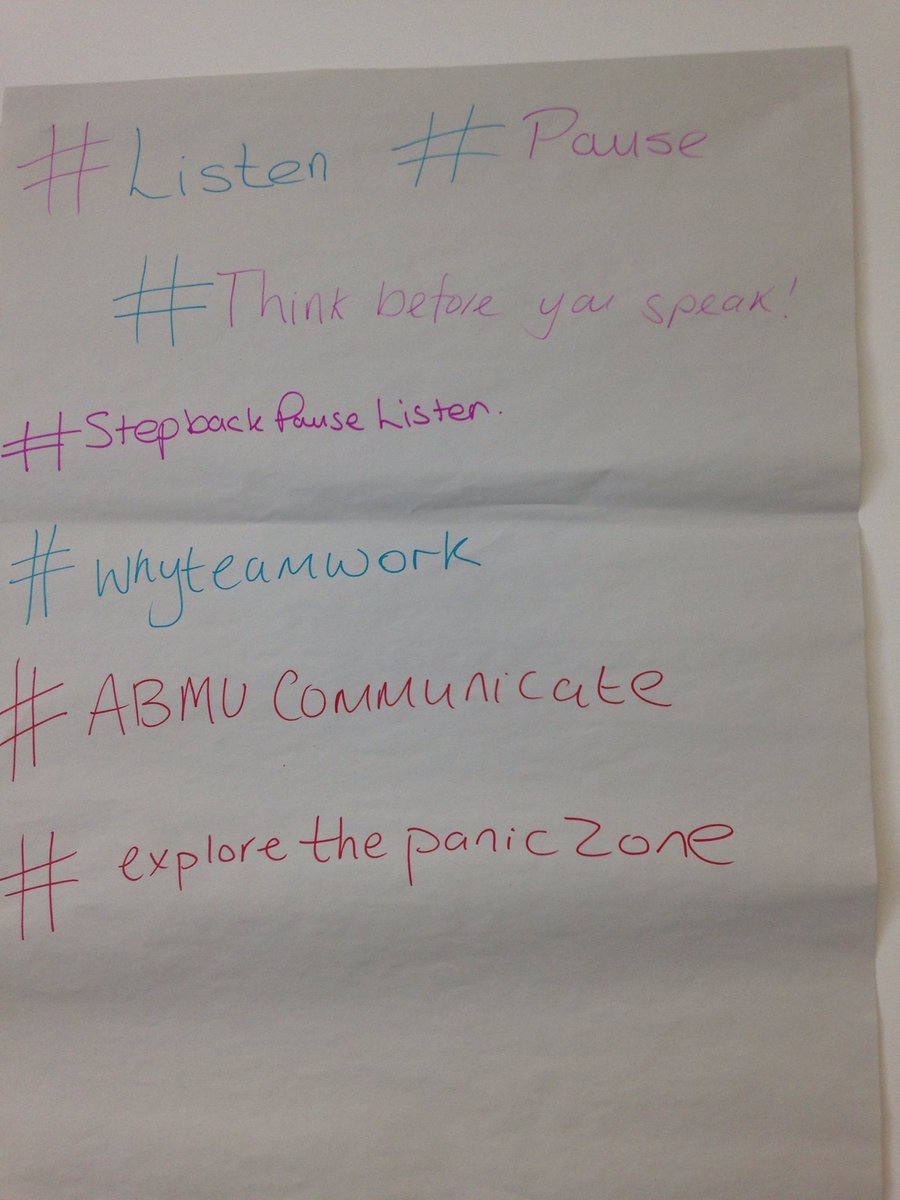 #Listen #Pause
#Think before you speak!
#Stepback Pause Listen.
#whyteamwork
#ABMU Communicate
#explore the panic Zone